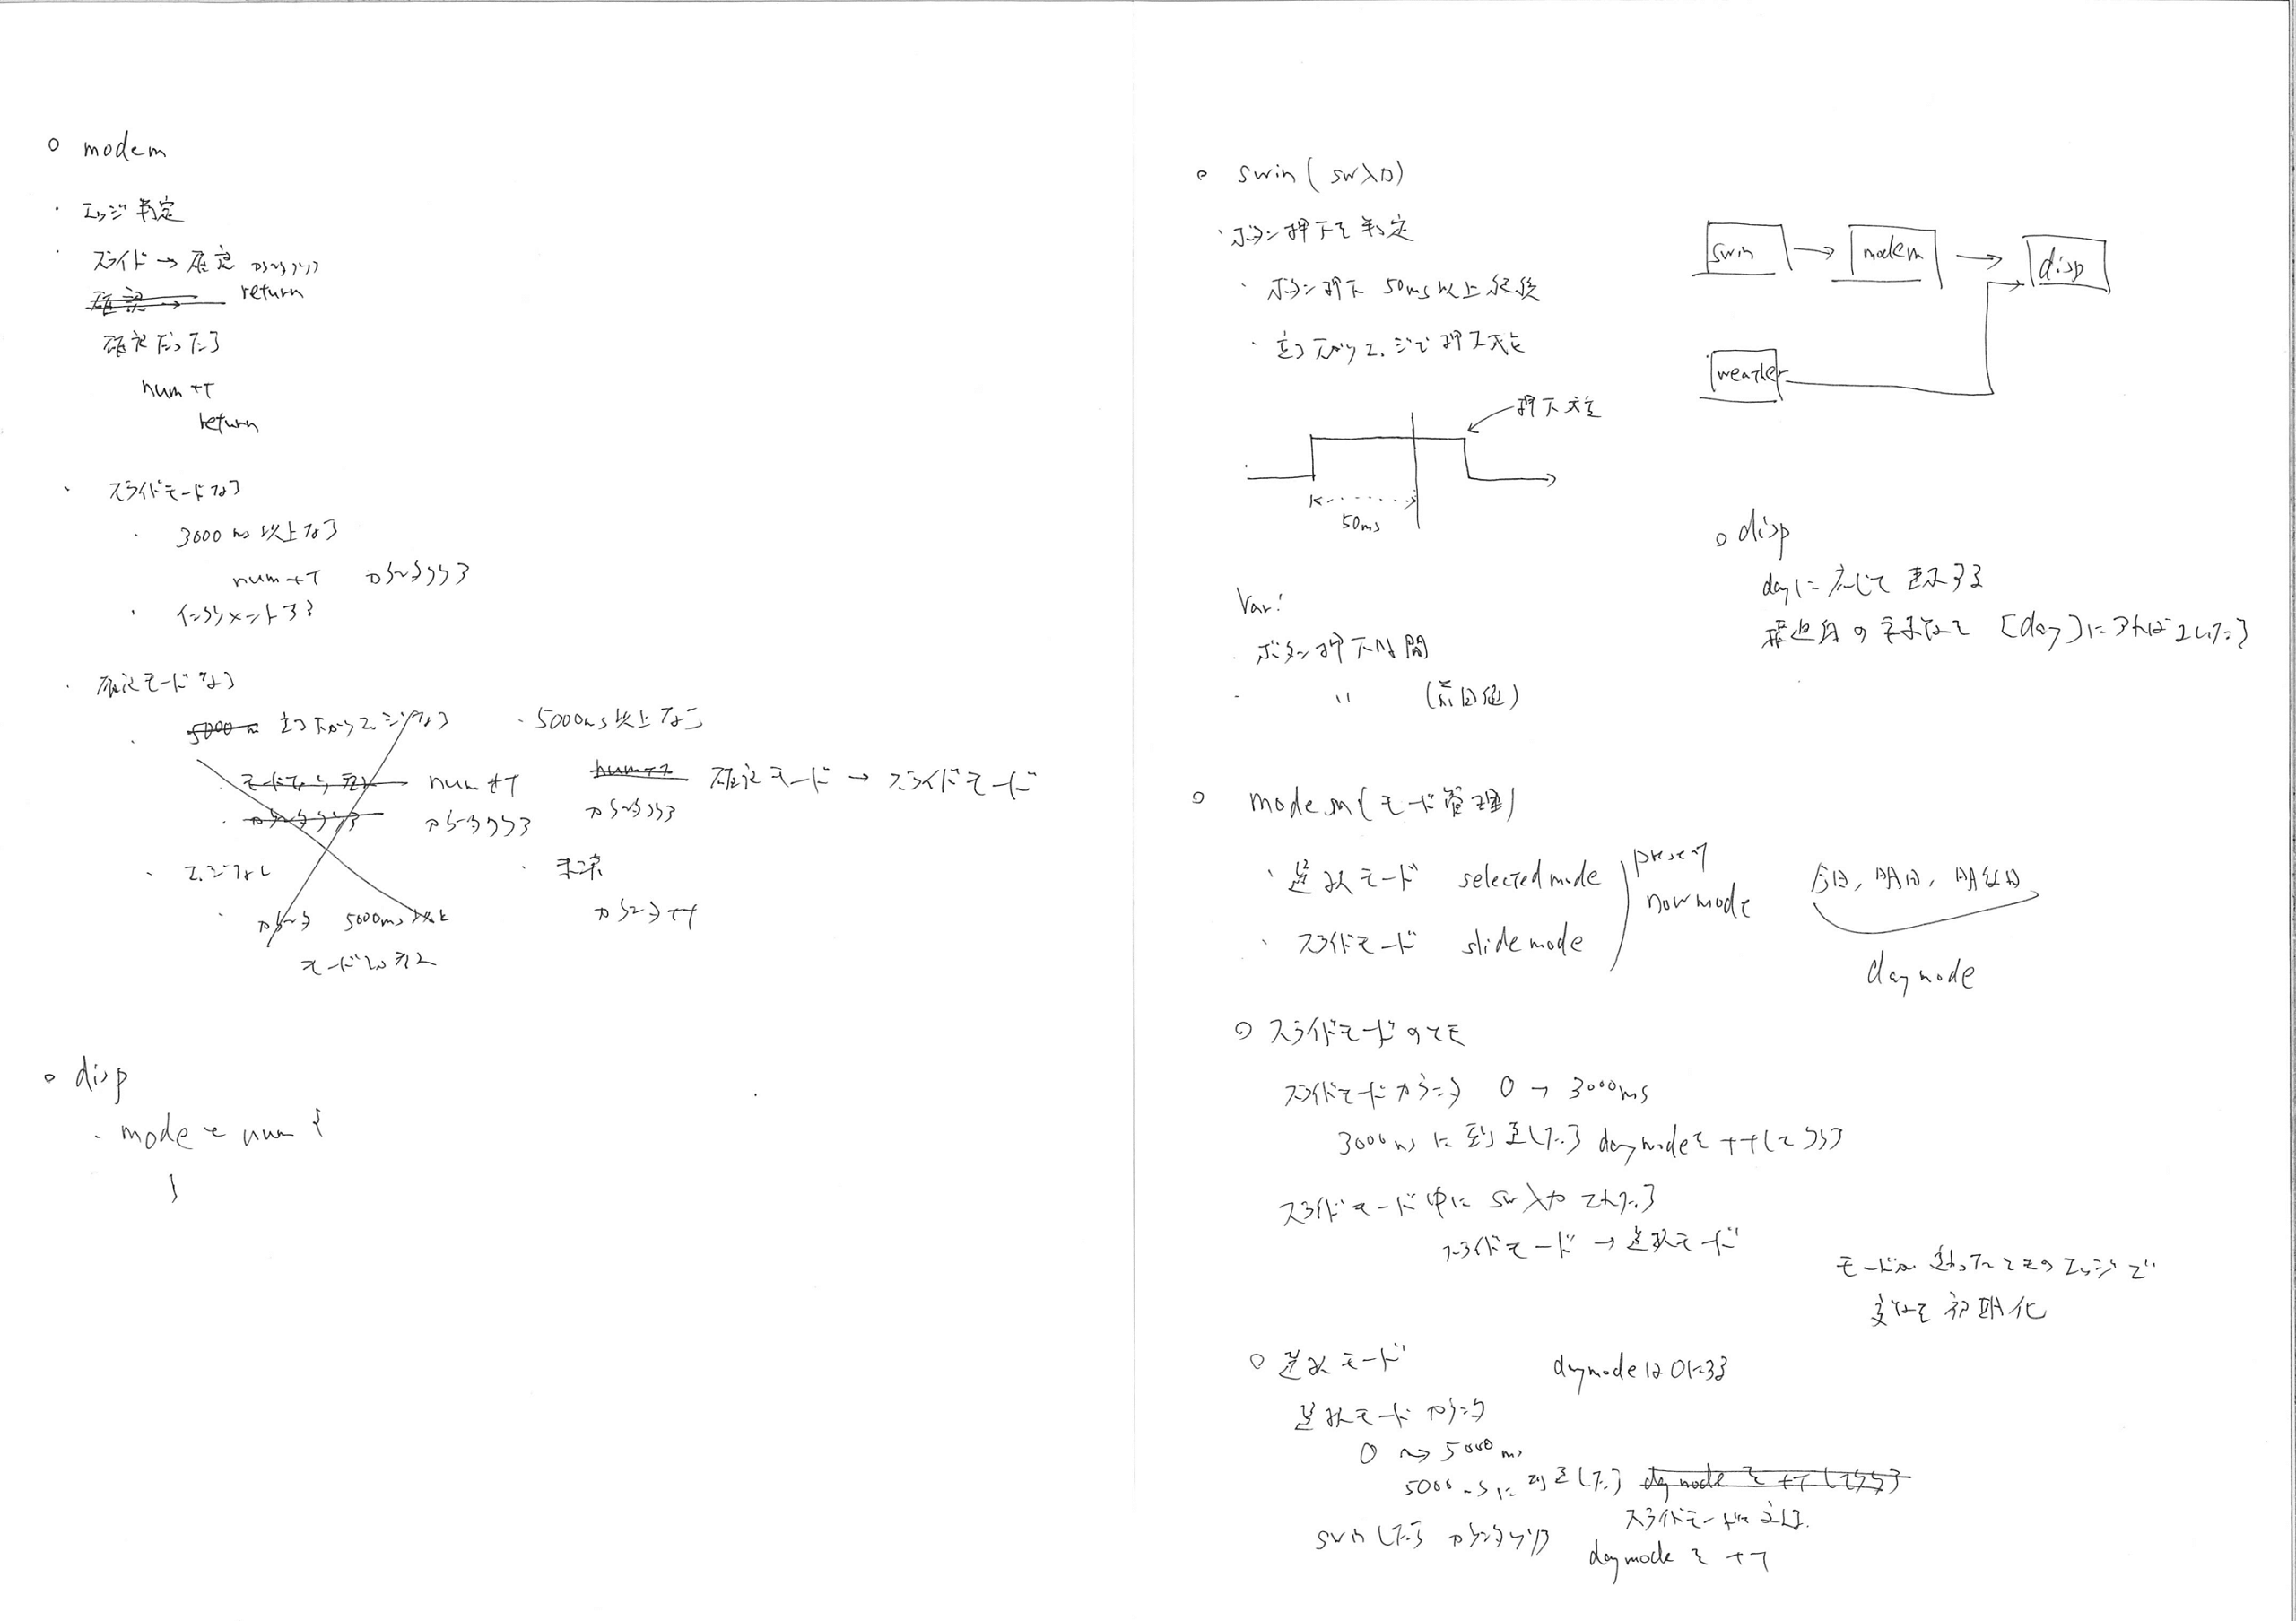 ○ modem
・エッジ判定
・スライド→確定 カウンタクリア
return
確定だったら
num++
return
・スライドモードなら
・3000ms以上なら
num++ カウンタクリア
・インクリメントする
・確定モードなら
・5000m 立ち下がりエッジなら
num++
カウンタクリア
・エッジなし
・カウンタ 5000ms以上
モードひっ
・5000ms以上なら
num++ 確定モード → スライドモード
カウンタクリア
・未満
カウンタ++
○ disp
・mode と num {
}
○ swin (sw入力)
・ボタン押下を判定
・ボタン押下 50ms以上経後
・立ち下がりエッジで押下
押下
50ms
Var:
・ボタン押下時間
・ 〃 (前回値)
swin → modem → disp
weather
○ disp
dayに応じて表示する
[day]にすればいい
○ modem (モード管理)
・選択モード selectedmode
・スライドモード slidemode
present
nowmode
今日, 明日, 明後日
daymode
○ スライドモードのとき
スライドモードカウンタ 0 → 3000ms
3000msに到達したら daymodeを++してクリア
スライドモード中に sw入力されたら
スライドモード → 選択モード
モードが変わったときのエッジで
変数を初期化
○ 選択モード daymodeは0になる
選択モードカウンタ
0 → 5000ms
5000msに到達したら daymodeを++してクリア
スライドモードに
swinしたら カウンタクリア
daymodeを++